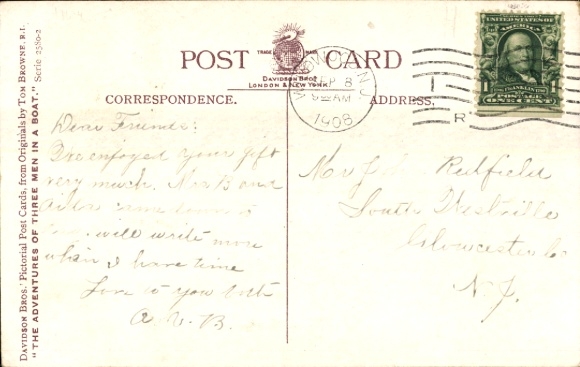 DAVIDSON BROS.' Pictorial Post Cards, from Originals by TOM BROWNE, R.I.
"THE ADVENTURES OF THREE MEN IN A BOAT." Serie 2580-2
POST CARD
TRADE MARK
DAVIDSON BROS.
LONDON & NEW YORK
CORRESPONDENCE.
ADDRESS.
SEP 8
AM
1908
1
R
UNITED STATES OF AMERICA
FRANKLIN
POSTAGE
ONE CENT
Dear Friends:
I've enjoyed your gift
very much. Mrs B and
came down
will write more
when I have time
Love to you both
A. V. B.
Redfield
South Westville
Gloucester Co
N. J.